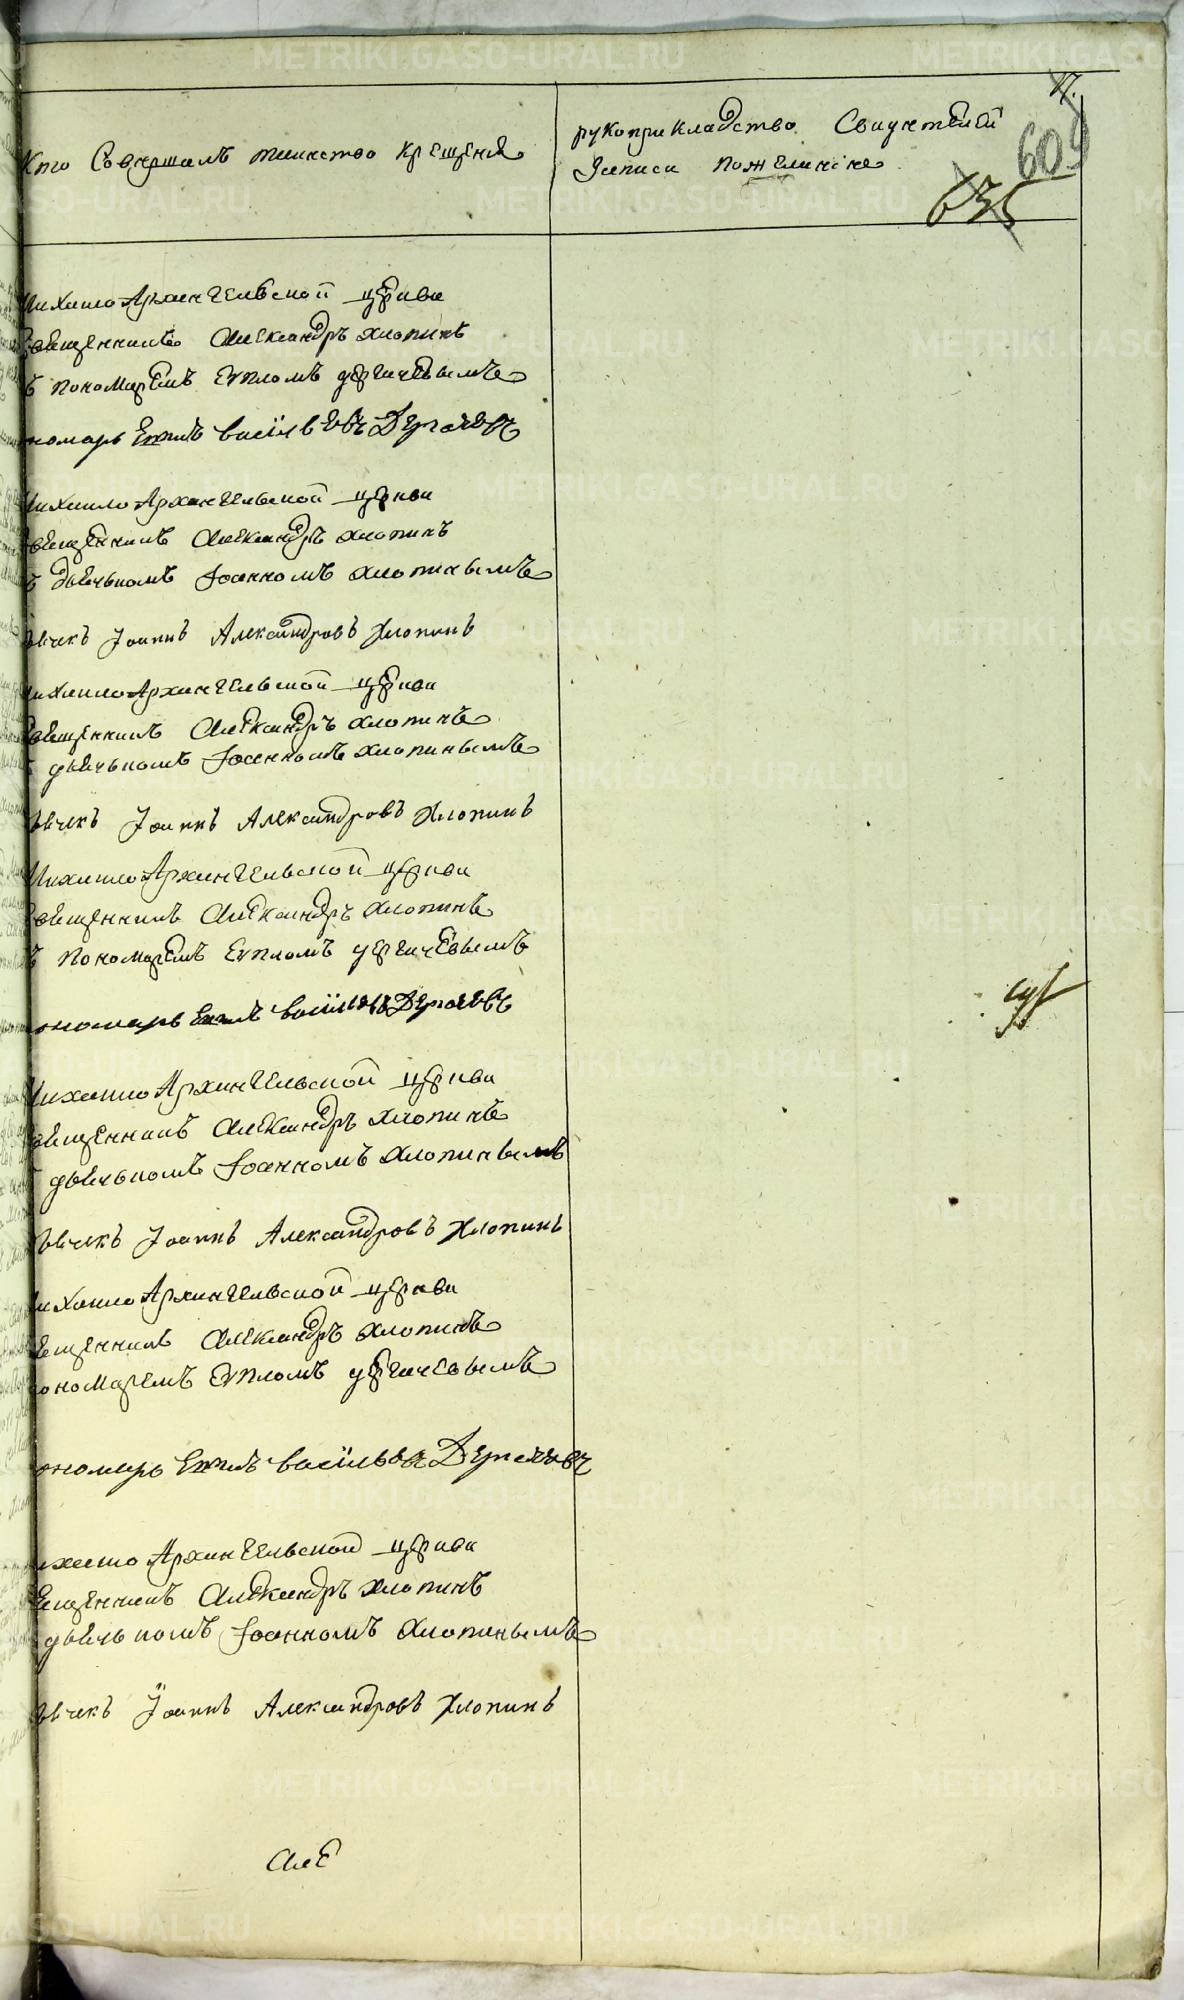 Кто Совершалъ таинство крещения
рукоприкладство Свидетелей
Записи по желанию
609
635
Михаило Архангельской церкви
Священникъ Александръ Хлопинъ
съ пономаремъ Евпломъ Дергачевымъ
пономарь Евплъ васильевъ Дергачевъ
Михаило Архангельской церкви
Священникъ Александръ Хлопинъ
съ дьячькомъ Іоанномъ Хлопинымъ
дьячекъ Іоаннъ Александровъ Хлопинъ
Михаило Архангельской церкви
Священникъ Александръ Хлопинъ
съ дьячькомъ Іоанномъ Хлопинымъ
дьячекъ Іоаннъ Александровъ Хлопинъ
Михаило Архангельской церкви
Священникъ Александръ Хлопинъ
съ пономаремъ Евпломъ дергачевымъ
пономарь Евплъ васильевъ Дергачевъ
Михаило Архангельской церкви
Священникъ Александръ Хлопинъ
съ дьячькомъ Іоанномъ Хлопинымъ
дьячекъ Іоаннъ Александровъ Хлопинъ
Михаило Архангельской церкви
Священникъ Александръ Хлопинъ
пономаремъ Евпломъ дергачевымъ
пономарь Евплъ васильевъ Дергачевъ
Михаило Архангельской церкви
Священникъ Александръ Хлопинъ
дьячькомъ Іоанномъ Хлопинымъ
дьячекъ Іоаннъ Александровъ Хлопинъ
Але
METRIKI.GASO-URAL.RU